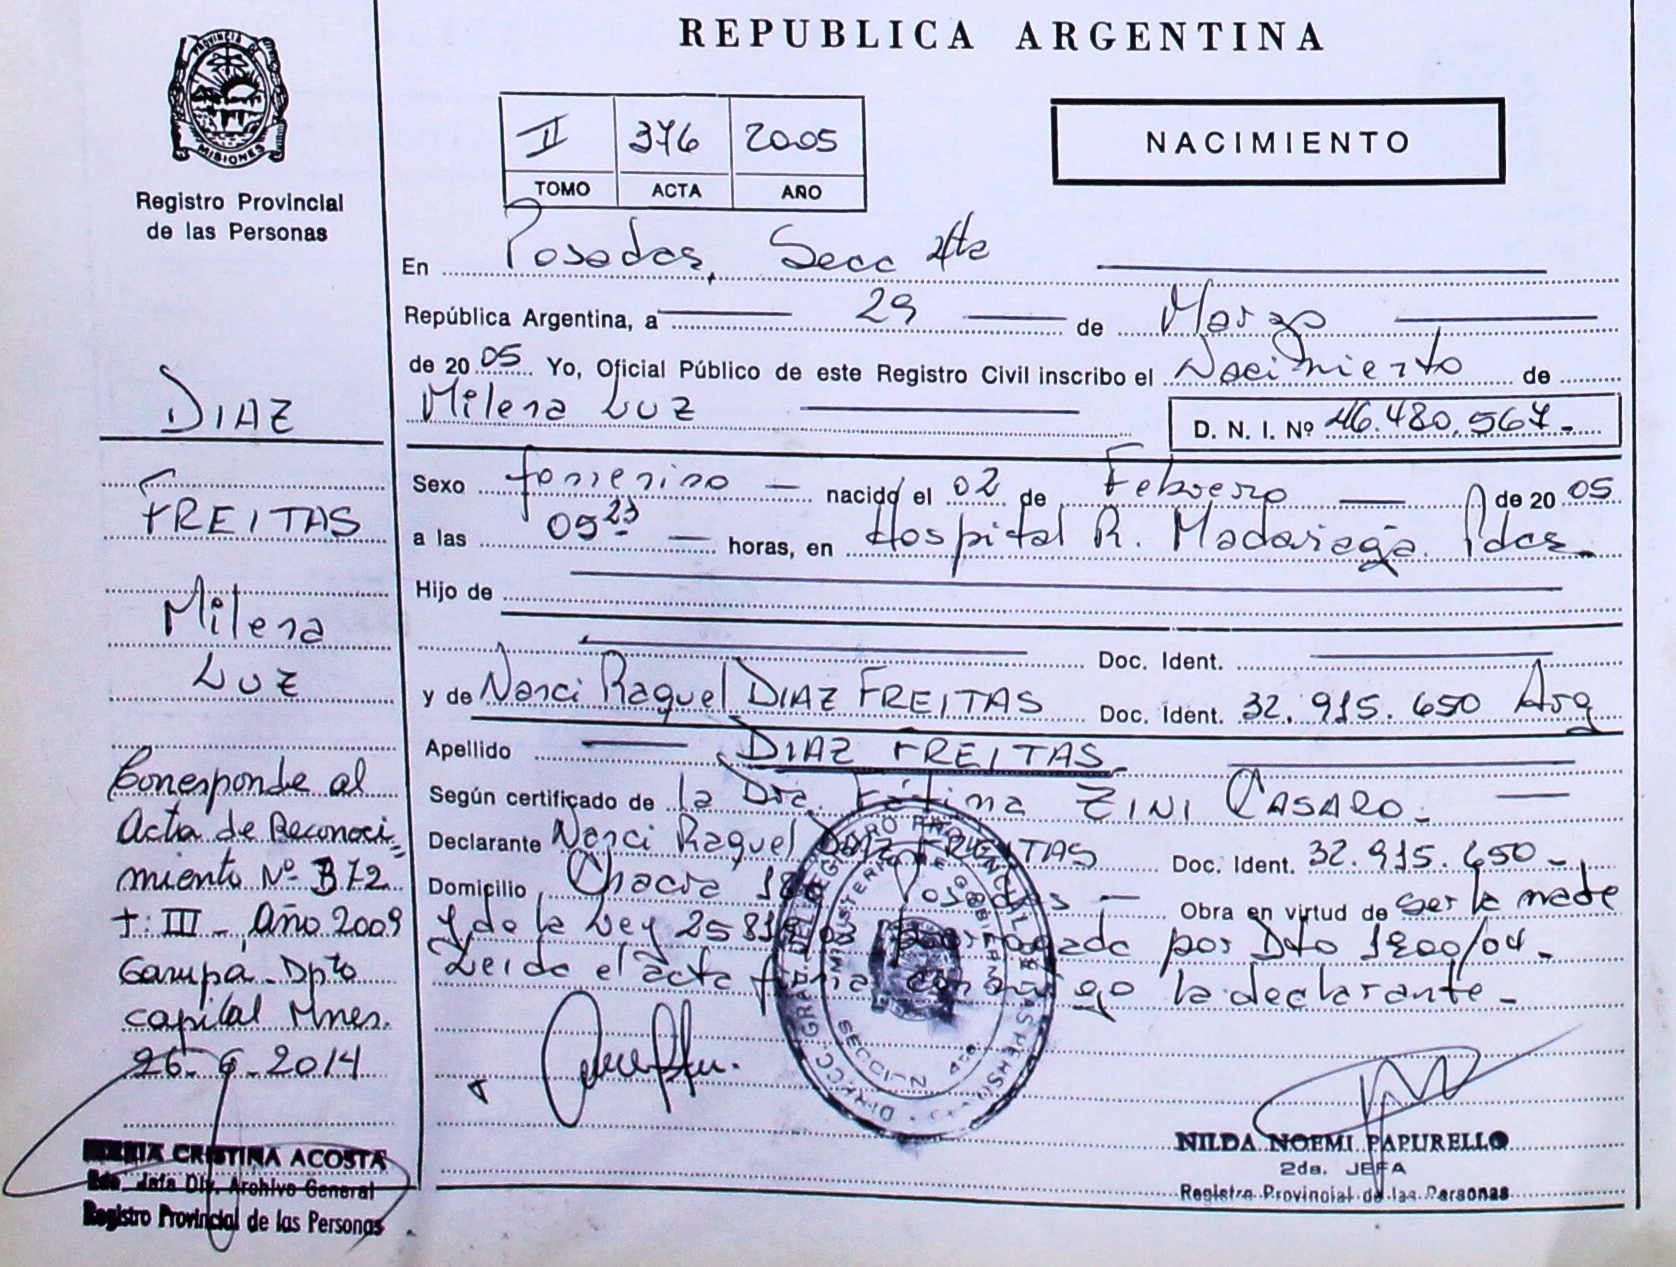 PROVINCIA DE
MISIONES
Registro Provincial
de las Personas
DIAZ
FREITAS
Milena
Luz
Corresponde al
Acta de Reconoci=
miento Nº 372
t: III - Año 2009
Garupá - Dpto
capital Mnes.
26-9-2014
MARIA CRISTINA ACOSTA
2da. Jefa Div. Archivo General
Registro Provincial de las Personas
REPUBLICA ARGENTINA
II 376 2005
TOMO ACTA AÑO
NACIMIENTO
En Posadas, Secc 4ta
República Argentina, a 29 de Marzo
de 20 05 Yo, Oficial Público de este Registro Civil inscribo el Nacimiento de
Milena Luz
D. N. I. Nº 46.480.567.-
Sexo femenino nacido el 02 de Febrero de 20 05
a las 05 23 horas, en Hospital R. Madariaga. Pdas.
Hijo de
Doc. Ident.
y de Narci Raquel DIAZ FREITAS Doc. Ident. 32.915.650 Arg
Apellido DIAZ FREITAS.
Según certificado de la Dra. Fátima ZINI CASARO.-
Declarante Narci Raquel DIAZ FREITAS Doc. Ident. 32.915.650.-
Domicilio Chacra Posadas Obra en virtud de ser la madre
y de la Ley 25819/03 prorrogada por Dto 1200/04.-
Leida el acta firma conmigo la declarante.-
NILDA NOEMI PAPURELLO
2da. JEFA
Registro Provincial de las Personas